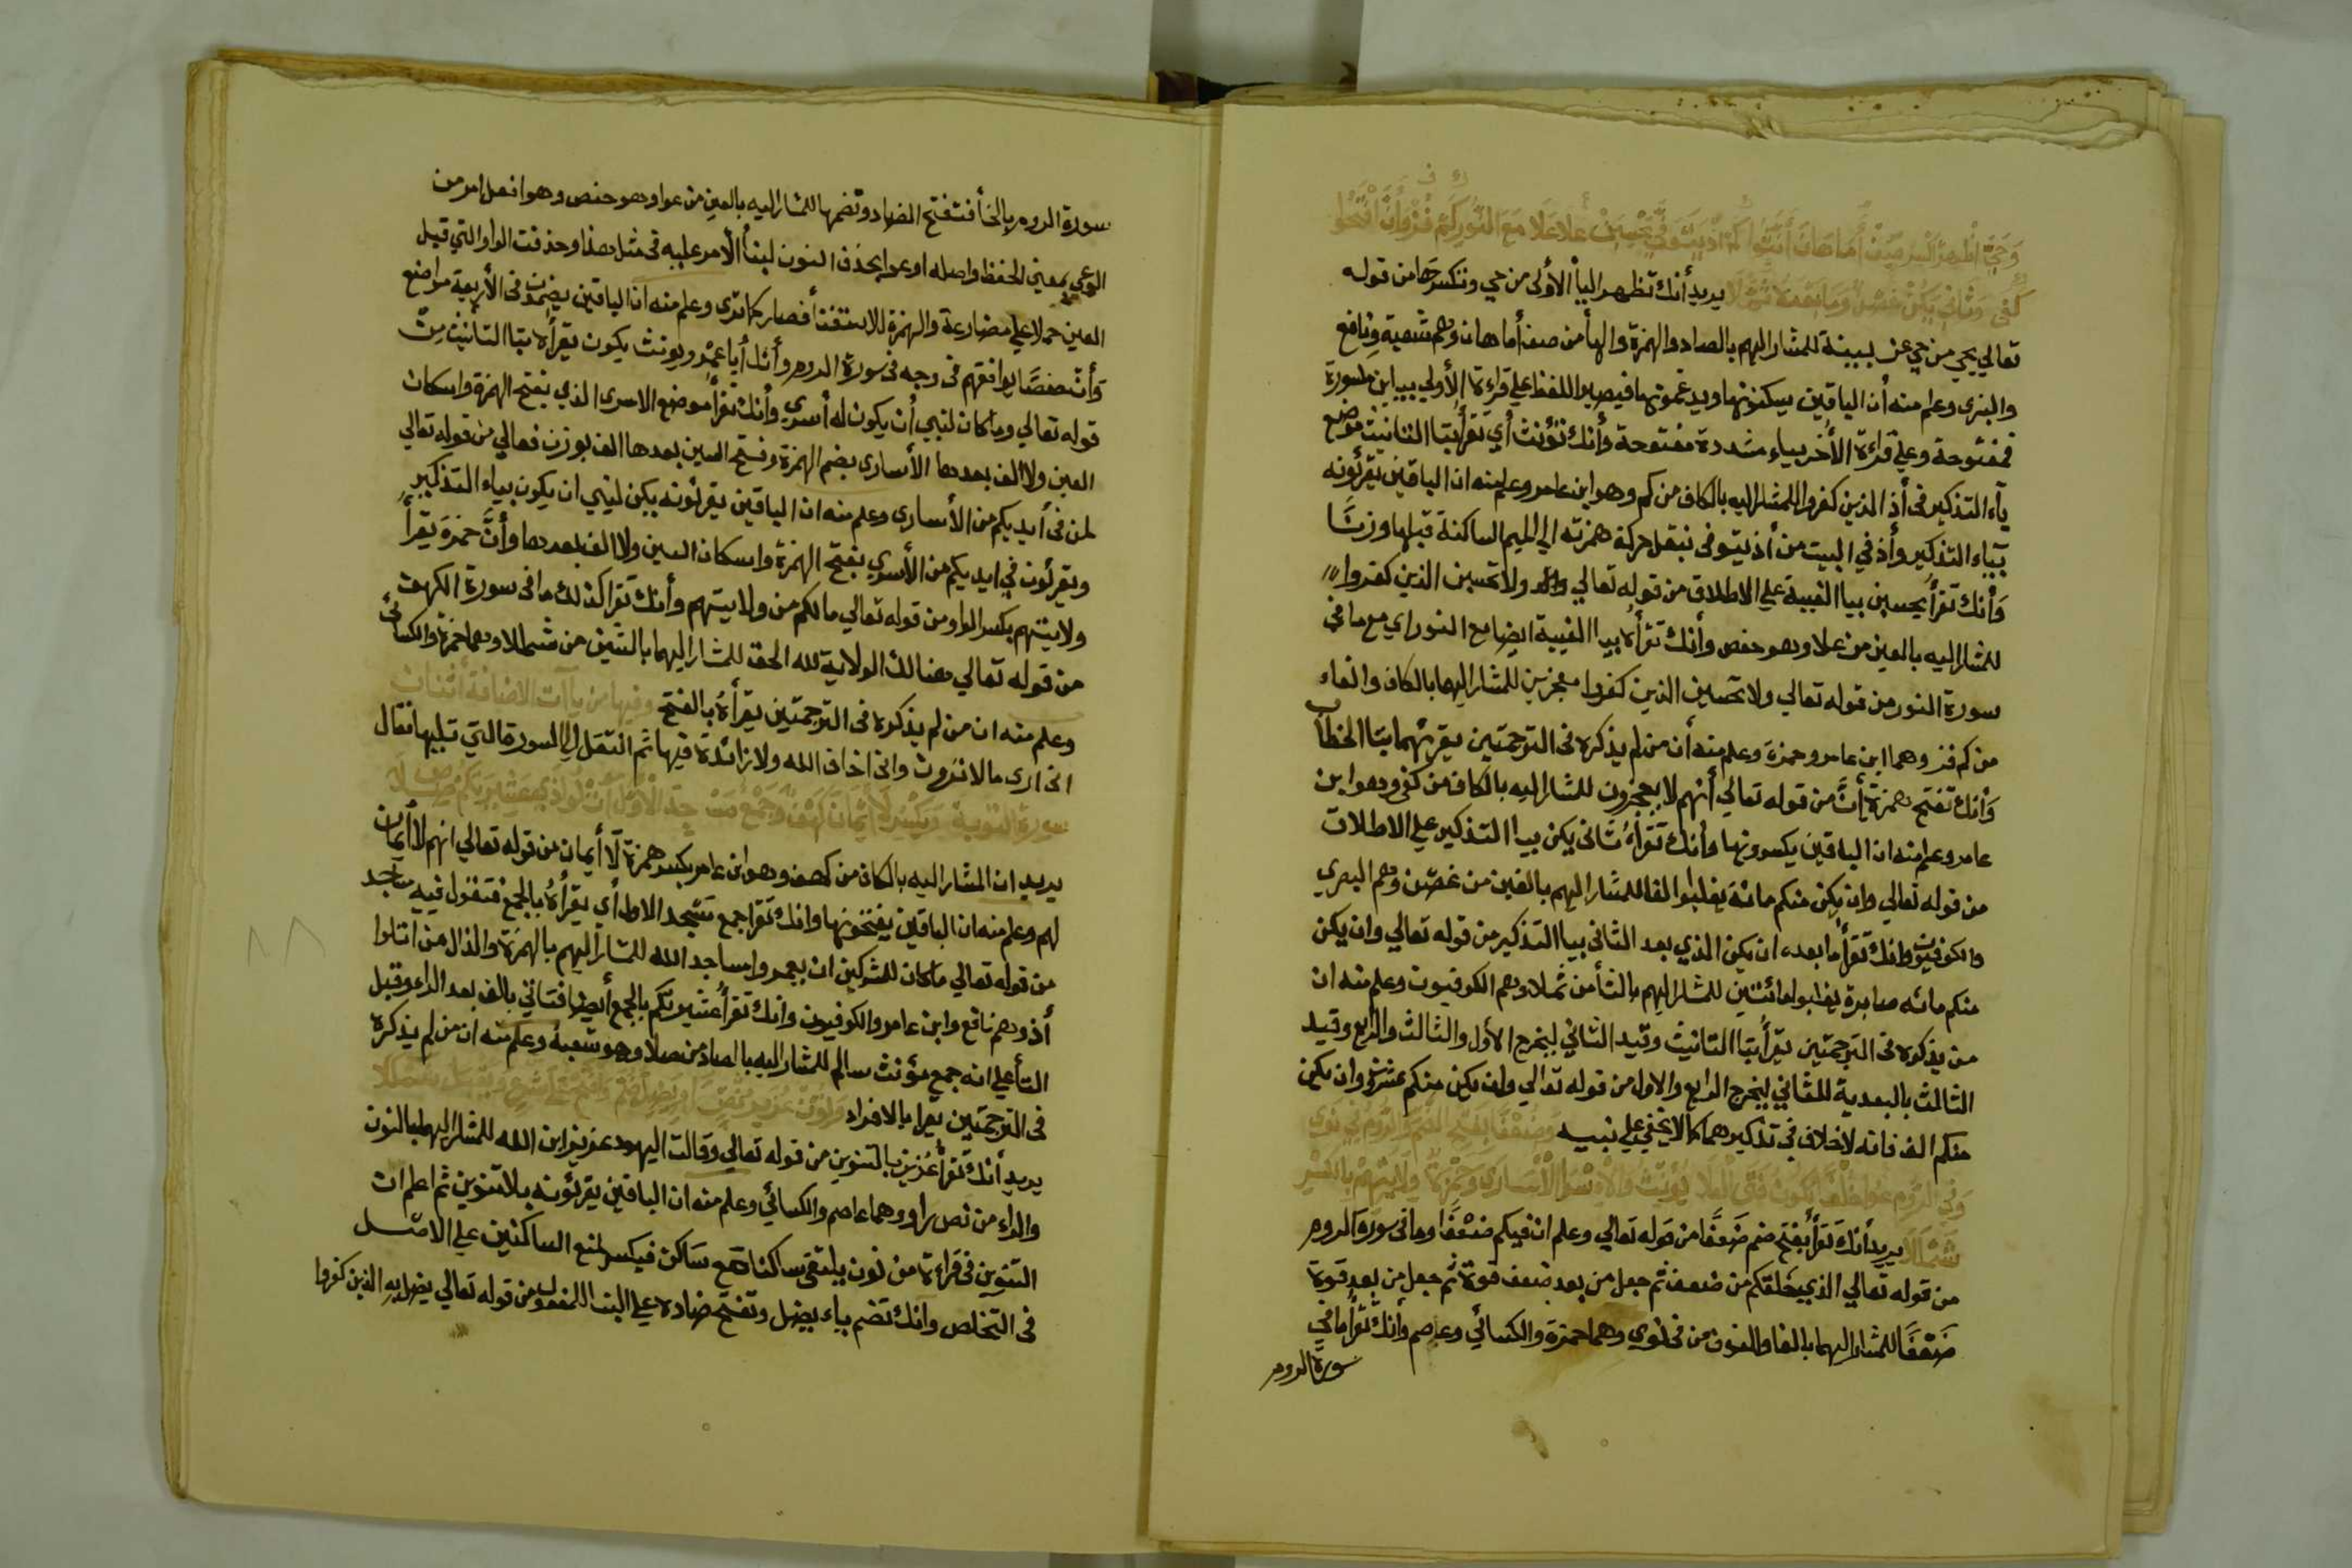 يريد أنك تظهر اليأ الأولى من حي وتكسرها من قوله
تعالي يحي من حي عن ببينة للمشار اليهم بالصاد والهمزة والهأ من صف أما هان وهم شعبة ونافع
والبزى وعلم منه أن الباقين يسكنونها ويدغمونها فيصير اللفظ علي قراءة الأولي بيائين مكسورة
فمفتوحة وعلي قراءة الأخر بياء مشددة مفتوحة وأنك تؤنث أي تقرأ بتا التانيث موضع
ياء التذكير في أذ الذين كفروا للمشار اليه بالكاف من كم وهو ابن عامر وعلم منه ان الباقين يقرئونه
بياء التذكير وأذ في البيت من أذ يتوفى بنقل حركة همزته الي الميم الساكنة قبلها وزنًا
وأنك تقرأ يحسبن بيا الغيبة علي الاطلاق من قوله تعالي ولا تحسبن الذين كفروا
للمشار اليه بالعين من علا وهو حفص وأنك تقرأه بيا الغيبة ايضا مع النور اي مع ما في
سورة النور من قوله تعالي ولا تحسبن الذين كفروا معجزين للمشار اليهما بالكاف والفاء
من كم فز وهما ابن عامر وحمزة وعلم منه أن من لم يذكره في الترجمتين يقرئهما بتا الخطاب
وأنك تفتح همزة أنَّ من قوله تعالي أنهم لا يعجزون للمشار اليه بالكاف من كفى وهو ابن
عامر وعلم منه ان الباقين يكسرونها وأنك تقرأ ثاني يكن بيا التذكير علي الاطلاق
من قوله تعالي وان يكن منكم مائة يغلبوا الفا للمشار اليهم بالغين من غصن وهم البصري
والكوفيون وانك تقرأ ما بعده ان يكن الذي بعد الثاني بيا التذكير من قوله تعالي وان يكن
منكم مائه صابرة يغلبوا مائتين للمشار اليهم بالثأ من ثملا وهم الكوفيون وعلم منه ان
من يذكره في الترجمتين يقرأ بتا التانيث وقيد الثاني ليخرج الأول والثالث والرابع وقيد
الثالث بالبعدية للثاني ليخرج الرابع والاول من قوله تعالي وان يكن منكم عشرون وان يكن
منكم الف فانه لاخلاف في تذكيرهما كما لا يخفي علي نبيه وضعفا بفتح الضم
وفي الروم
شملا يريد أنك تقرأ بفتح ضم ضعفًا من قوله تعالي وعلم ان فيكم ضعفًا وما في سورة الروم
من قوله تعالي الذي خلقكم من ضعف ثم جعل من بعد ضعف قوة ثم جعل من بعد قوة
ضعفًا للمشار اليهما بالفا والنون من في نوي وهما حمزة والكسائي وعاصم وأنك تقرأ ما في
سورة الروم
سورة الروم بالخأ فتفتح الضاد وتضمها للمشار اليه بالعين من عوا وهو حفص وهو انفعل امر من
الوعي بمعني الحفظ واصله اوعوا بحذف النون لبنأ الأمر عليه في مثل هذا وحذفت الواو التي قبل
العين حملا علي مضارعة والهمزة للاستغنأ فصار كما ترى وعلم منه ان الباقين يضمون في الأربعة مواضع
وأن حفصًا يوافقهم في وجه في سورة الروم وأنك أيا عمرو يونث يكون يقرأه بتا التانيث من
قوله تعالي وما كان لنبي أن يكون له أسري وأنك تقرأ موضع الاسرى الذي بفتح الهمزة واسكان
العين ولا الف بعدها الأسارى بضم الهمزة وفتح السين بعدها الف بوزن فعالي من قوله تعالي
لمن في أيديكم من الأسارى وعلم منه ان الباقين يقرئونه يكن لنبي ان يكون بياء التذكير
ويقرئون في ايديكم من الأسري بفتح الهمزة واسكان السين ولا الف بعدها وأنَّ حمزة يقرأ
ولايتهم بكسر الواو من قوله تعالي مالكم من ولايتهم وأنك تقرا كذلك ما في سورة الكهف
من قوله تعالي هنالك الولاية لله الحق للمشار اليهما بالشين من شملا وهما حمزة والكسائي
وعلم منه ان من لم يذكره في الترجمتين يقرأه بالفتح وفيها من ياآت الاضافة اثنان
اني ارى مالا ترون واني اخاف الله ولا زائدة فيها ثم انتقل الي السورة التي تليها فقال
سورة التوبة ويكسر لا أيمان
يريد ان المشار اليه بالكاف من كهف وهو ابن عامر يكسر همزة لا أيمان من قوله تعالي انهم لا أيمان
لهم وعلم منه ان الباقين يفتحونها وانك تقرا جمع مسجد الاول أي يقرأه بالجمع فتقول فيه مساجد
من قوله تعالي ما كان للمشركين ان يعمروا مساجد الله للمشار اليهم بالهمزة والذال من اتلوا
أذ وهم نافع وابن عامر والكوفيون وانك تقرأ عشيرتكم بالجمع أيضا فتاتي بالف بعد الراء وقبل
التأ علي انه جمع مؤنث سالم للمشار اليه بالصاد من صلا وهو شعبة وعلم منه ان من لم يذكره
في الترجمتين يقرا بالافراد
يريد أنك تقرأ عزيز بالتنوين من قوله تعالي وقالت اليهود عزيز ابن الله للمشار اليهما بالنون
والراء من نص راو وهما عاصم والكسائي وعلم منه ان الباقين يقرئونه بلا تنوين ثم اعلم ان
التنوين في قراءة من نون يلتقي ساكنا مع ساكن فيكسر لمنع الساكنين علي الاصل
في التخلص وانك تضم ياء يضل وتفتح ضاده علي البنا للمفعول من قوله تعالي يضل به الذين كفروا
٨٨